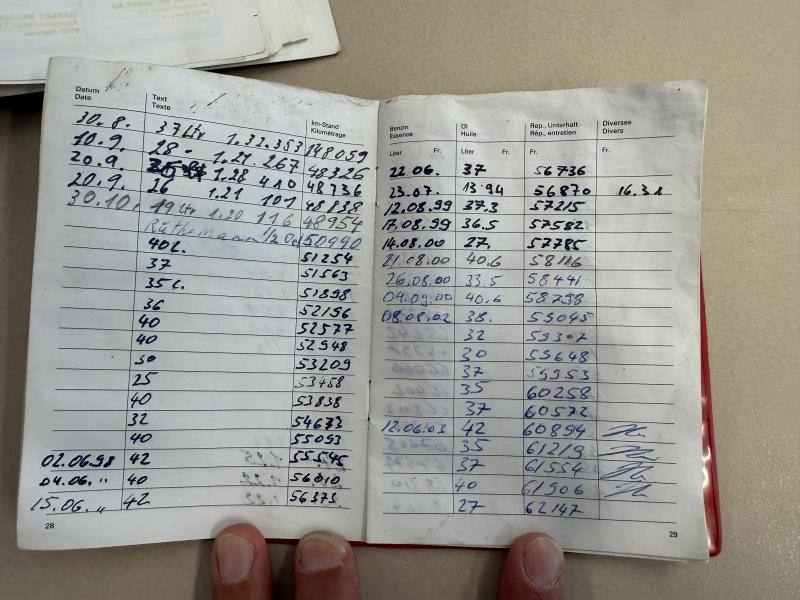 Datum Date Text Texte km-Stand Kilométrage
30.8. 37 Ltr 1.32.353 148059
10.9. 28 - 1.21.267 48326
20.9. 1.28 410 48736
20.9. 26 1.21 101 48838
30.10. 19 Ltr 1.20 116 48954
1/2 50990
40 L. 51254
37 51563
35 L. 51898
36 52156
40 52577
40 52948
30 53209
25 53458
40 53838
32 54673
40 55093
02.06.98 42 55545
04.06. " 40 56010
15.06. " 42 56373
28
Benzin Essence Öl Huile Rep., Unterhalt Rép., entretien Diverses Divers
Liter Fr. Liter Fr. Fr. Fr.
22.06. 37 56736
23.07. 13.94 56870
12.08.99 37.3 57215
17.08.99 36.5 57582
14.08.00 27, 57785
21.08.00 40.6 58116
26.08.00 33.5 58441
04.09.00 40.6 58798
08.08.02 38. 59045
32 59302
30 59648
37 59953
35 60258
37 60572
12.06.03 42 60894
35 61219
37 61554
40 61906
27 62147
29